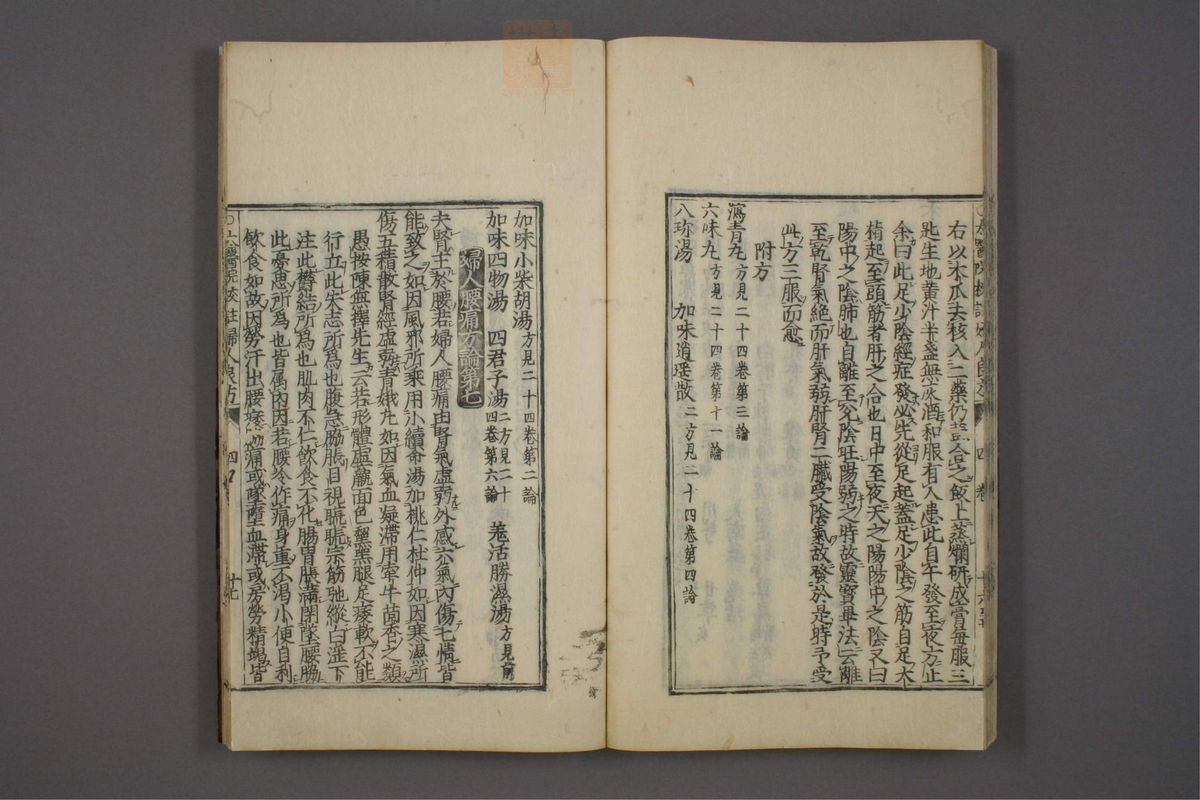 右以木瓜去核入二藥仍蓋合之飯上蒸爛研成膏每服三
匙生地黃汁半盞無灰酒和服有人患此自午發至夜方止
余曰此足少陰經症發必先從足起蓋足少陰之筋自足大
指起至頭筋者肝之合也日中至夜天之陽陽中之陰又曰
陽中之陰肺也自離至兌陰旺陽弱之時故靈寶畢法云離
至乾腎氣絕而肝氣弱肝腎二臟受陰氣故發於是時予受
此方三服而愈
附方
瀉青丸方見二十四卷第三論
六味丸方見二十四卷第十一論
八珍湯 加味逍遙散二方見二十四卷第四論
太醫院校註婦人良方
四 卷
加味小柴胡湯方見二十四卷第二論
加味四物湯 四君子湯二方見二十四卷第六論 羗活勝濕湯方見前
婦人腰痛方論第七
夫腎主於腰若婦人腰痛由腎氣虛弱外感六氣內傷七情皆
能致之如因風邪所乘用小續命湯加桃仁杜仲如因寒濕所
傷五積散腎經虛弱青娥丸如因氣血凝滯用牽牛茴香之類
愚按陳無擇先生云若形體虛羸面色黧黑腿足痿軟不能
行立此失志所為也腹急脇脹目視𥆨𥆨宗筋弛縱白淫下
注此欝結所為也肌肉不仁飲食不化腸胃脹滿閉墜腰脇
此憂思所為也皆属內因若腰冷作痛身重不渴小便自利
飲食如故因勞汗出腰痿𤍠痛或墜墮血滯或房勞精竭皆
太醫院校註婦人良方
四
廿七